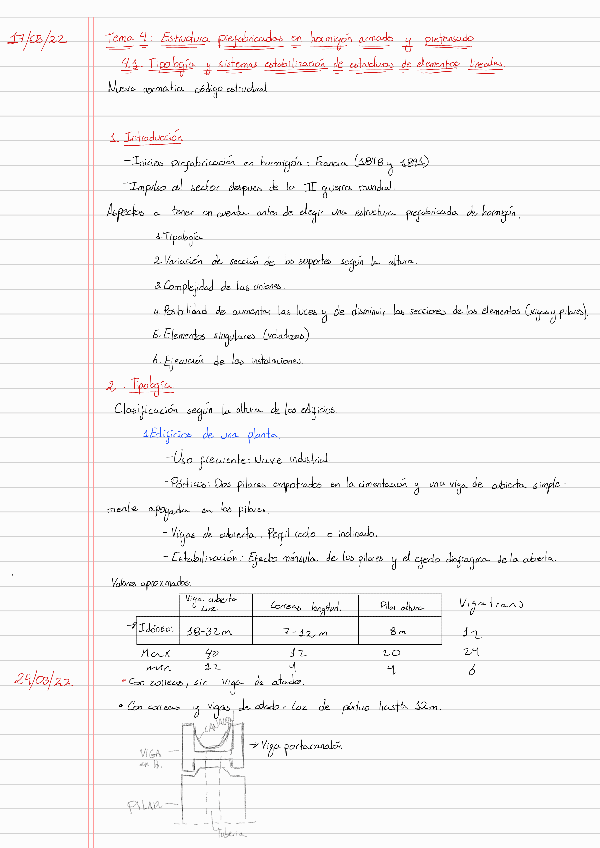 17/03/22
Tema 4: Estructura prefabricadas en hormigón armado y pretensado
4.1. Tipología y sistemas estabilización de estructuras de elementos lineales.
Nueva normativa código estructural
1. Introducción
- Inicios prefabricación en hormigón: Francia (1848 y 1891)
- Impulso al sector despues de la II guerra mundial
Aspectos a tener en cuenta antes de elegir una estructura prefabricada de hormigón.
1. Tipología
2. Variación de sección de los soportes según la altura.
3. Complejidad de las uniones.
4. Posibilidad de aumentar las luces y de disminuir las secciones de los elementos (vigas y pilares).
5. Elementos singulares (voladizos)
6. Ejecución de las instalaciones.
2. Tipología
Clasificación según la altura de los edificios.
1. Edificios de una planta.
- Uso frecuente: Nave industrial
- Pórticos: Dos pilares empotrados en la cimentación y una viga de cubierta simple-
mente apoyada en los pilares.
- Vigas de cubierta. Perfil recto o inclinado.
- Estabilización: Efecto ménsula de los pilares y el efecto diafragma de la cubierta.
Valores aproximados:
Viga cubierta Luz Correas longitud. Pilar altura Viga trans
→ Idóneo: 18-32m 7-12m 8m 12
Max 40 12 20 24
min 12 4 4 6
• Con correas, sin viga de atado.
• Con correas y vigas de atado - Luz de pórtico hasta 32m.
CANALÓN
→ Viga portacanalón.
VIGA
en H.
PILAR
Tubería